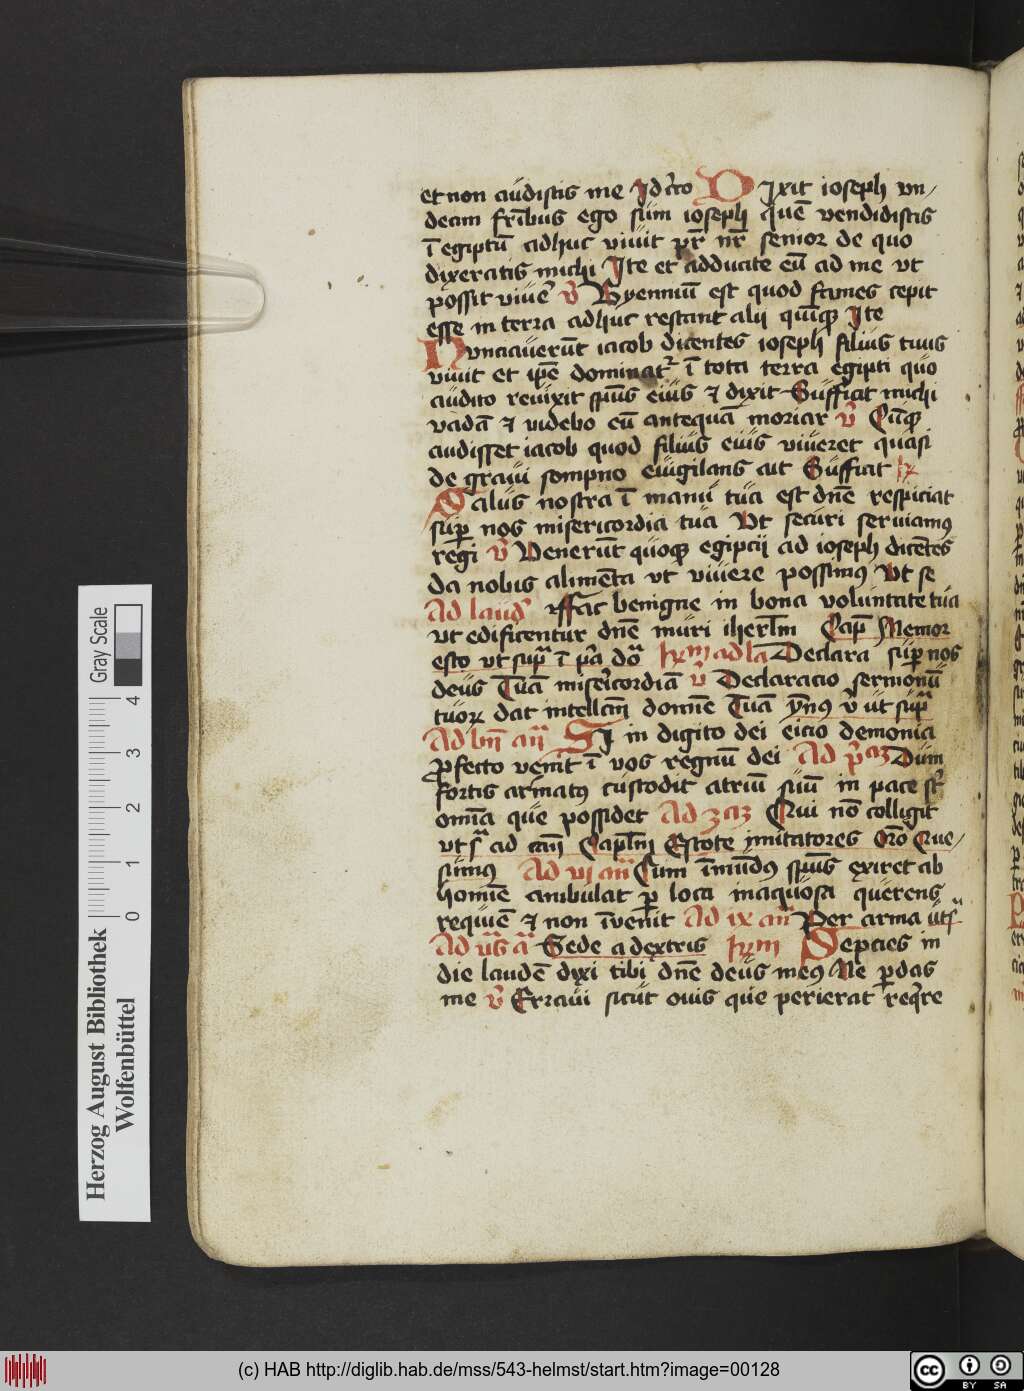 et non audistis me Idcͬco Dixit ioseph vn/
decim fr̄ibus ego sum ioseph quē vendidistis
ī egiptū adhuc viuit pr̄ nr̄ senior de quo
dixeratis michi Ite et adducite eū ad me vt
possit viuē v̄ Byenniū est quod fames cepit
esse in terra adhuc restant alii quīqꝫ Ite
Nvnciauerūt iacob dicentes ioseph filius tuus
viuit et ip̄e dominatᷣ ī tota terra egipti quo
audito reuixit sp̄us eius ⁊ dixit Sufficat michi
vadā ⁊ videbo eū antequā moriar v̄ Cūqꝫ
audisset iacob quod filius eius viueret quasi
de graui sompno euigilans ait Sufficat ꝶ
Salus nostra ī manu tua est dn̄e respiciat
suꝑ nos misericordia tua Vt securi seruiamꝰ
regi v̄ Venerūt quoqꝫ egipcii ad ioseph dicētes
da nobis alimēta vt viuere possimꝰ Vt se
Ad laud̄ ffac benigne in bona voluntate tua
vt edificentur dn̄e muri iherl̄m Cap̄ Memor
esto vt sup̄ ī p̄a do̅ hꝫm ad la̅ Declara suꝑ nos
deus Tuā misericordiā v̄ Declaracio sermonū
tuoꝝ dat intellcm̄ domīe Tuā ym̄ꝰ v̄ ut sup̄
Ad bn̄ an̄ SI in digito dei eicio demonia
ꝓfecto venit ī vos regnū dei Ad p̄cꝫ Dum
fortis armatꝰ custodit atriū suū in pace st̄
omīa que possidet Ad 3cꝫ Qui nō colligit
vt sᵃ ad can̄ Capl̄m Estote ymitatores Orō Que/
sumꝰ Ad vi an̄ Cum īmūdꝰ sp̄us exiret ab
homīe ambulat ꝑ loca inaquosa querens
requiē ⁊ non īvenit Ad ix an̄ Per arma ut sᵃ
Ad v̄s a̅ Sede a dextris hꝫm Sepcies in
die laudē dixi tibi dn̄e deus meꝰ Ne ꝑdas
me v̄ Erraui sicut ouis que perierat reqͥre
Gray Scale
4 3 2 1 0
Herzog August Bibliothek
Wolfenbüttel
(c) HAB http://diglib.hab.de/mss/543-helmst/start.htm?image=00128
cc BY SA